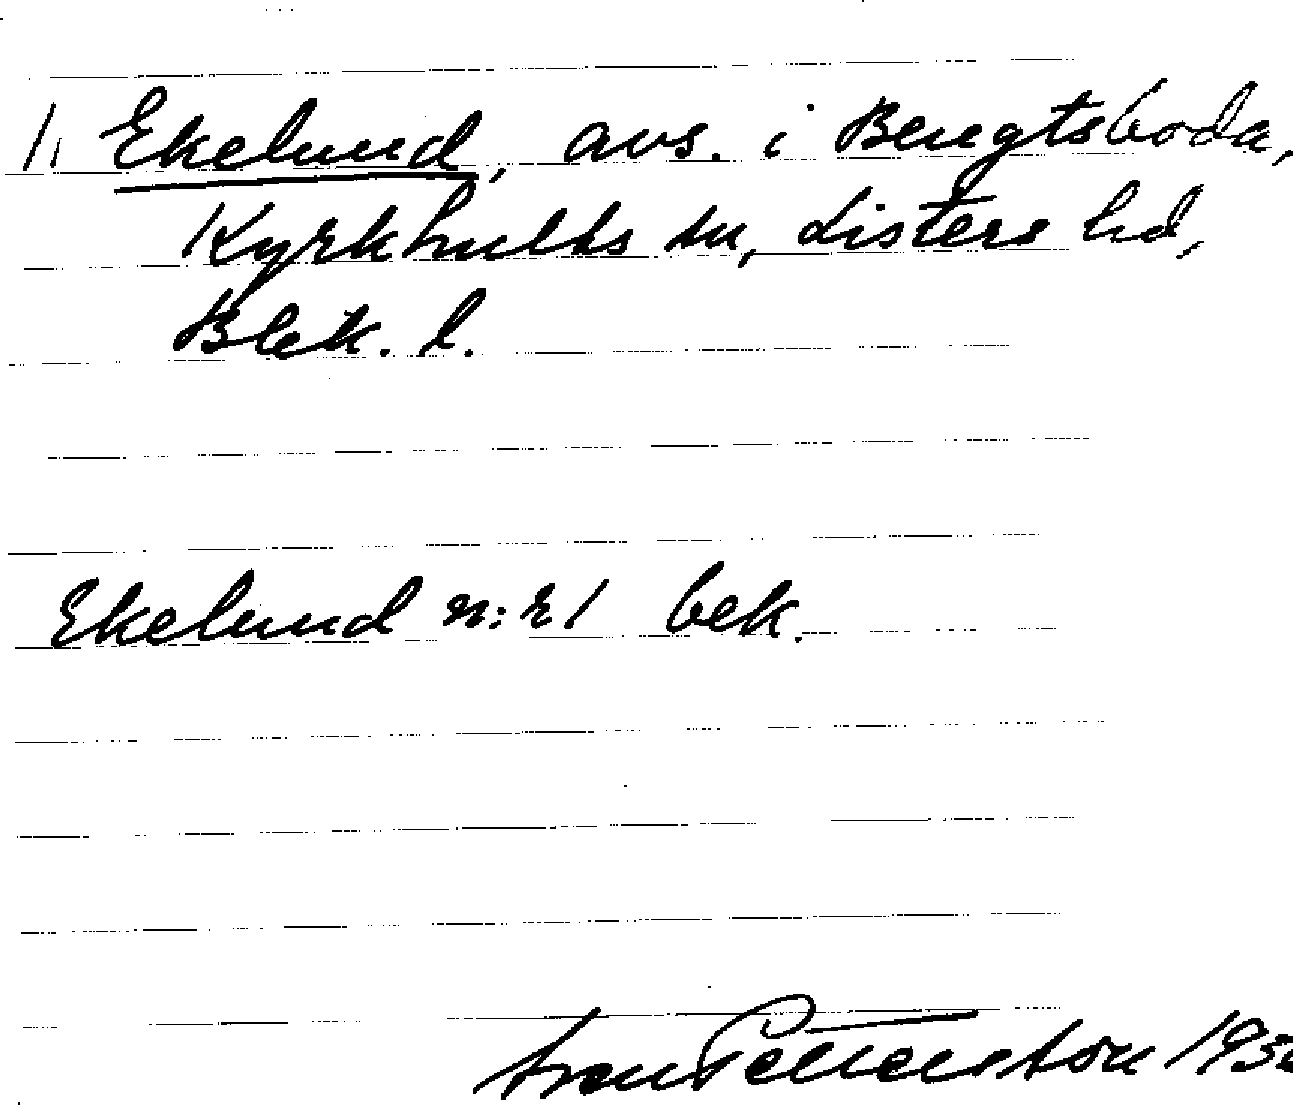 1, Ekelund, avs. i Bengtsboda,
Kyrkhults sn, Listers hd,
Blek. l.
Ekelund n:r 1 bek.
Pettersson